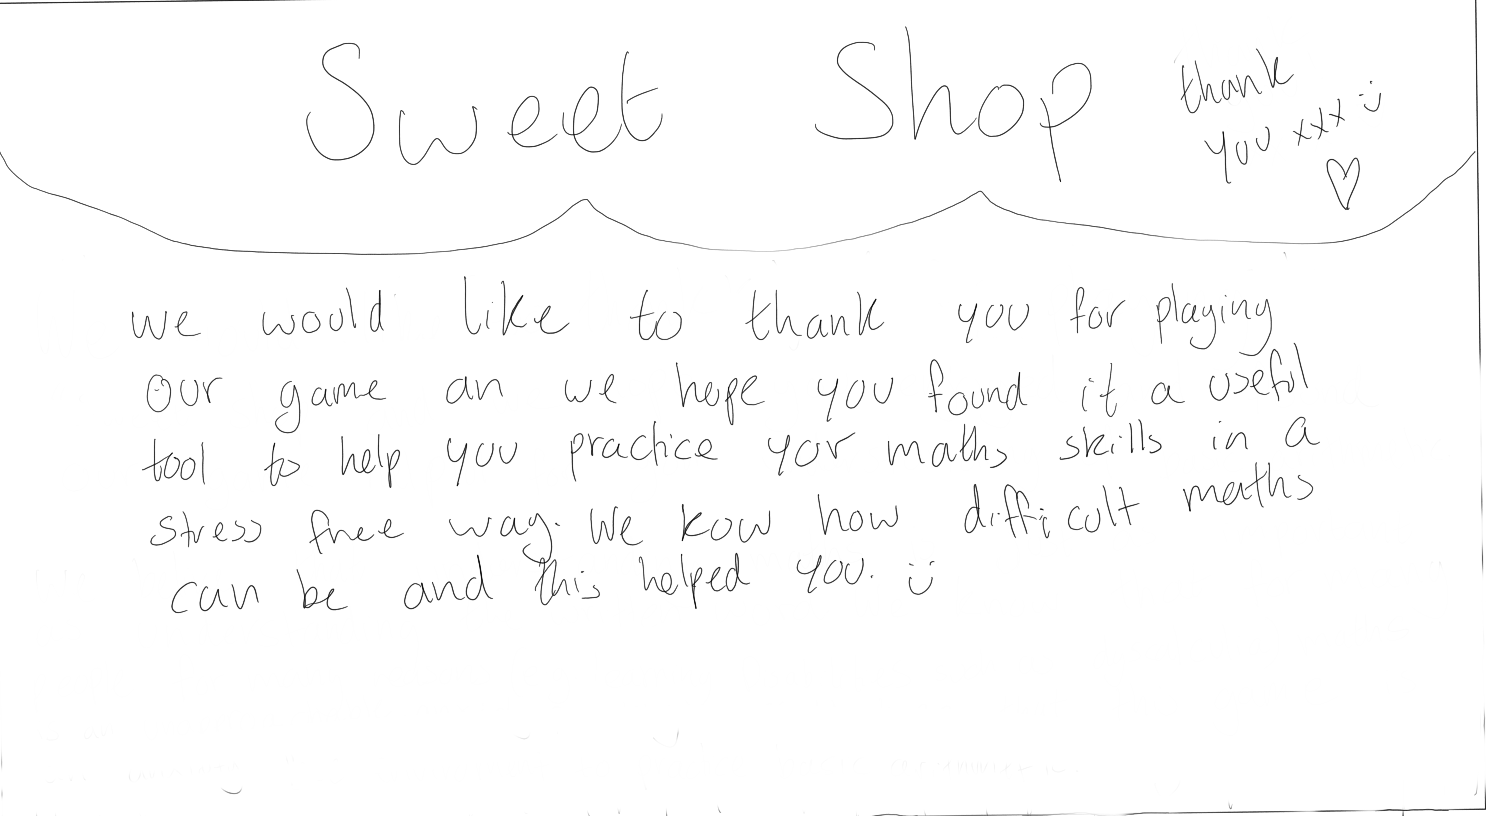 Sweet Shop
thank
you xxx :)
♡
we would like to thank you for playing
our game an we hope you found it a useful
tool to help you practice yor maths skills in a
stress free way. We kow how difficult maths
can be and this helped you. :)